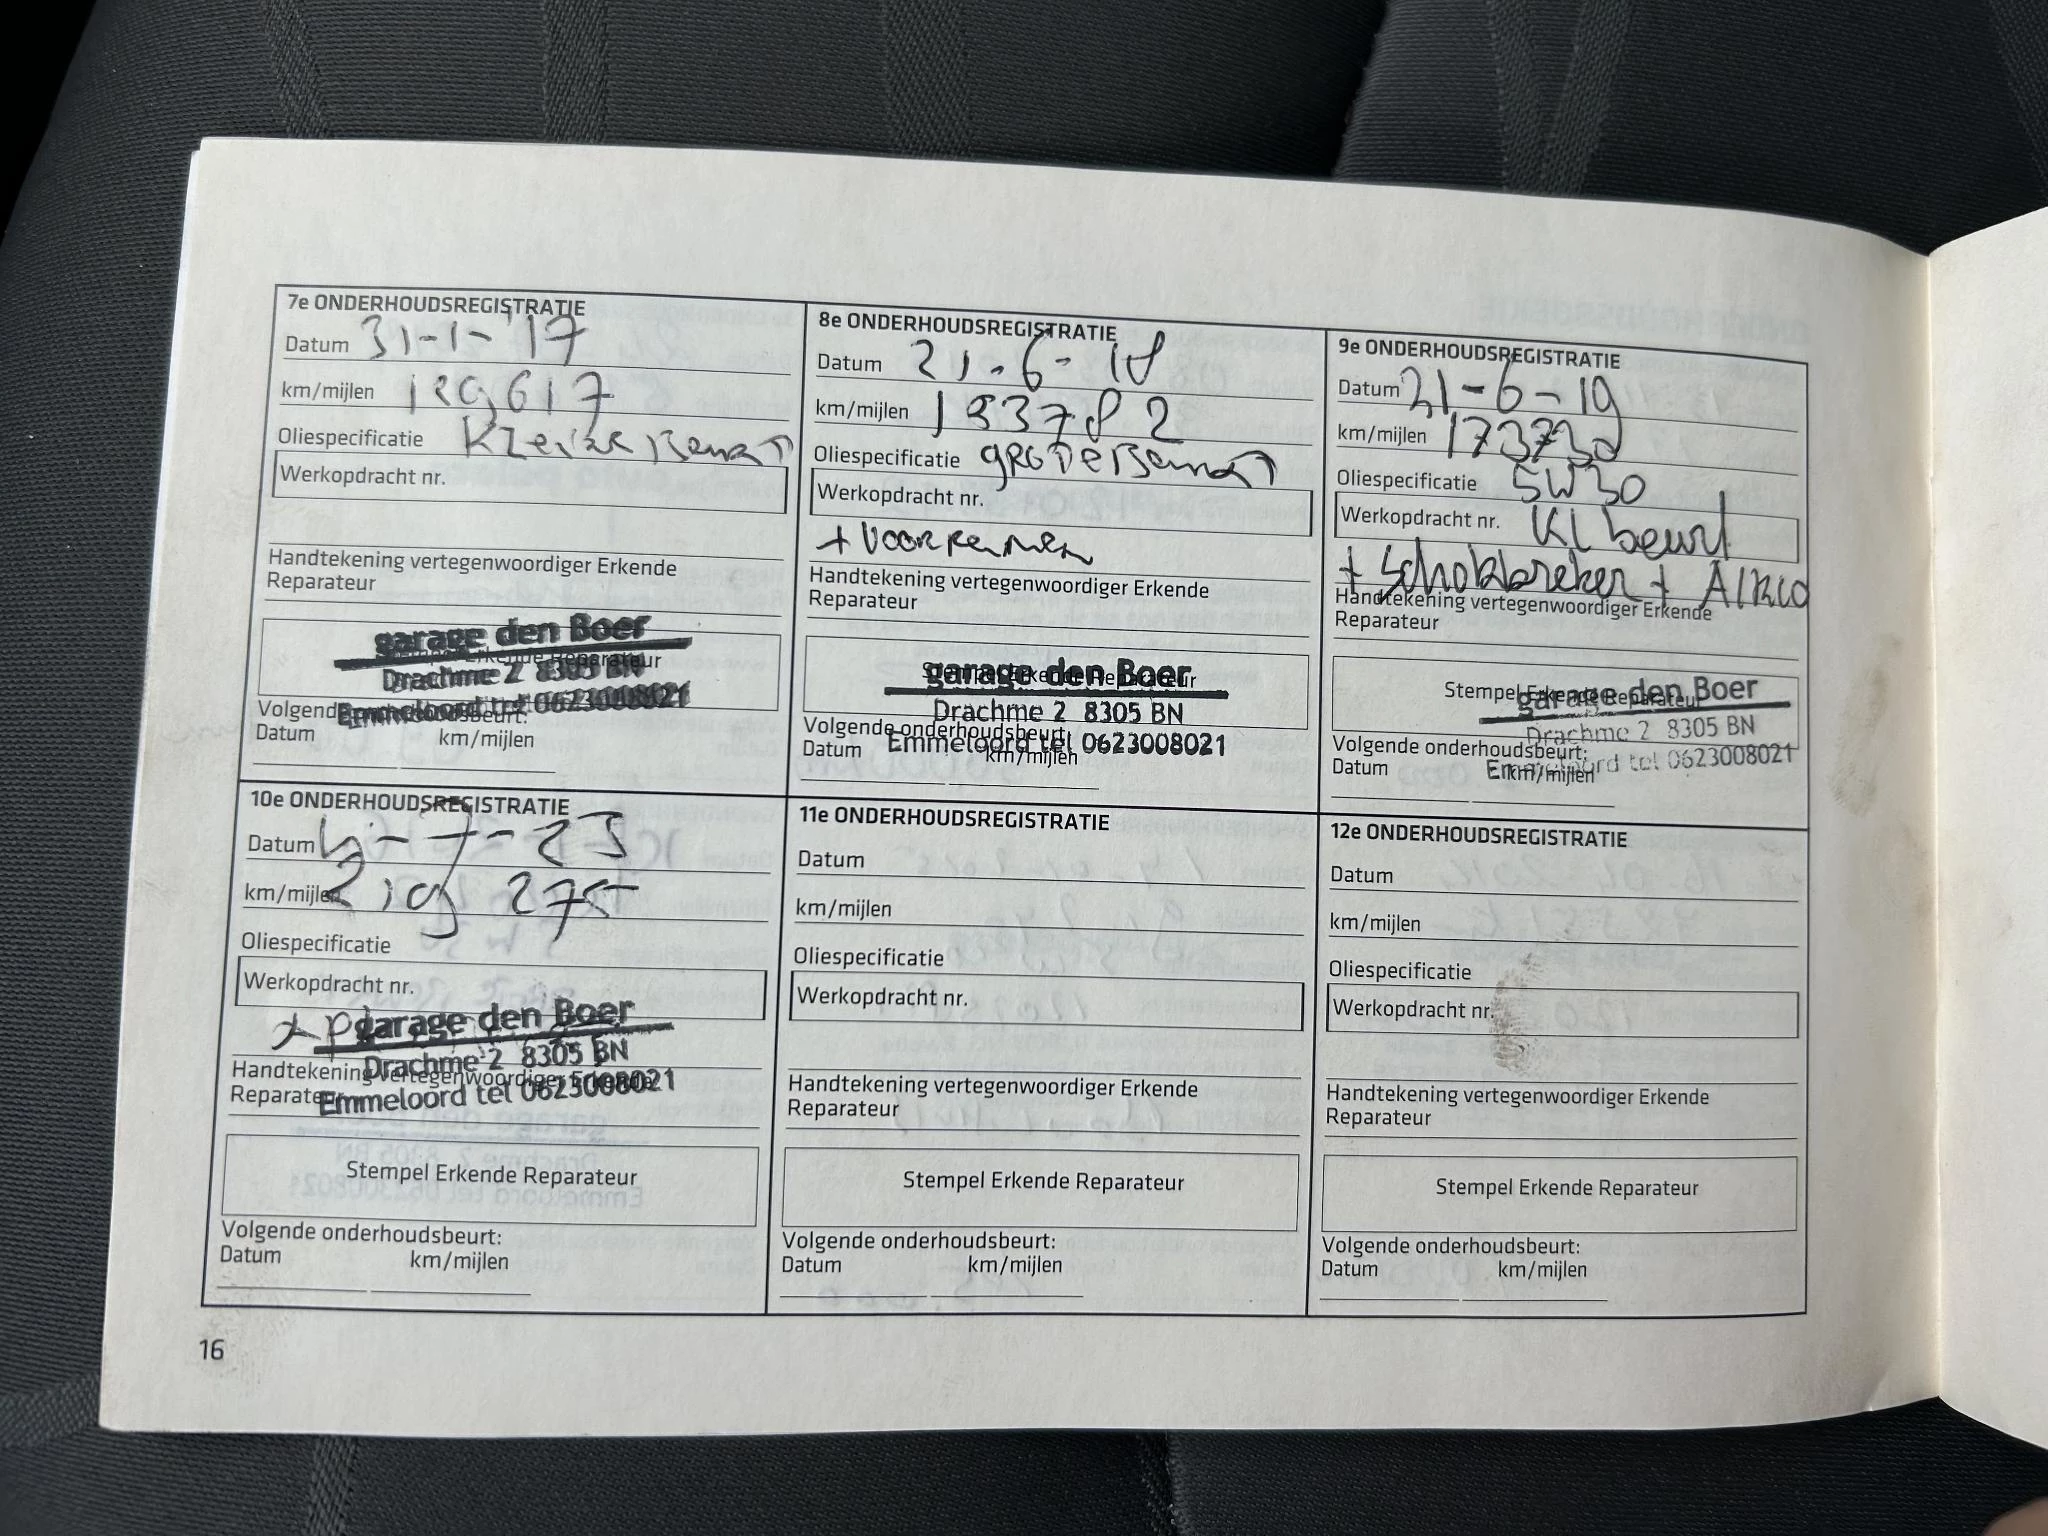 7e ONDERHOUDSREGISTRATIE
Datum 31-1-'17
km/mijlen 120617
Oliespecificatie Kleine Beurt
Werkopdracht nr.
Handtekening vertegenwoordiger Erkende
Reparateur
garage den Boer
Erkende Reparateur
Drachme 2 8305 BN
Emmeloord tel 0623008021
Volgende onderhoudsbeurt:
Datum km/mijlen
8e ONDERHOUDSREGISTRATIE
Datum 21-6-18
km/mijlen
Oliespecificatie groteBeurt
Werkopdracht nr.
+ Voorremmen
Handtekening vertegenwoordiger Erkende
Reparateur
Stempel Erkende Reparateur
garage den Boer
Drachme 2 8305 BN
Emmeloord tel 0623008021
Volgende onderhoudsbeurt:
Datum km/mijlen
9e ONDERHOUDSREGISTRATIE
Datum 21-6-19
km/mijlen 173730
Oliespecificatie 5W30
Werkopdracht nr. Kl beurt
+ Schokbreker + Airco
Handtekening vertegenwoordiger Erkende
Reparateur
Stempel Erkende Reparateur
garage den Boer
Drachme 2 8305 BN
Emmeloord tel 0623008021
Volgende onderhoudsbeurt:
Datum km/mijlen
10e ONDERHOUDSREGISTRATIE
Datum
km/mijlen 219 275
Oliespecificatie
Werkopdracht nr.
garage den Boer
Drachme 2 8305 BN
Emmeloord tel 0623008021
Handtekening vertegenwoordiger Erkende
Reparateur
Stempel Erkende Reparateur
Volgende onderhoudsbeurt:
Datum km/mijlen
11e ONDERHOUDSREGISTRATIE
Datum
km/mijlen
Oliespecificatie
Werkopdracht nr.
Handtekening vertegenwoordiger Erkende
Reparateur
Stempel Erkende Reparateur
Volgende onderhoudsbeurt:
Datum km/mijlen
12e ONDERHOUDSREGISTRATIE
Datum
km/mijlen
Oliespecificatie
Werkopdracht nr.
Handtekening vertegenwoordiger Erkende
Reparateur
Stempel Erkende Reparateur
Volgende onderhoudsbeurt:
Datum km/mijlen
16